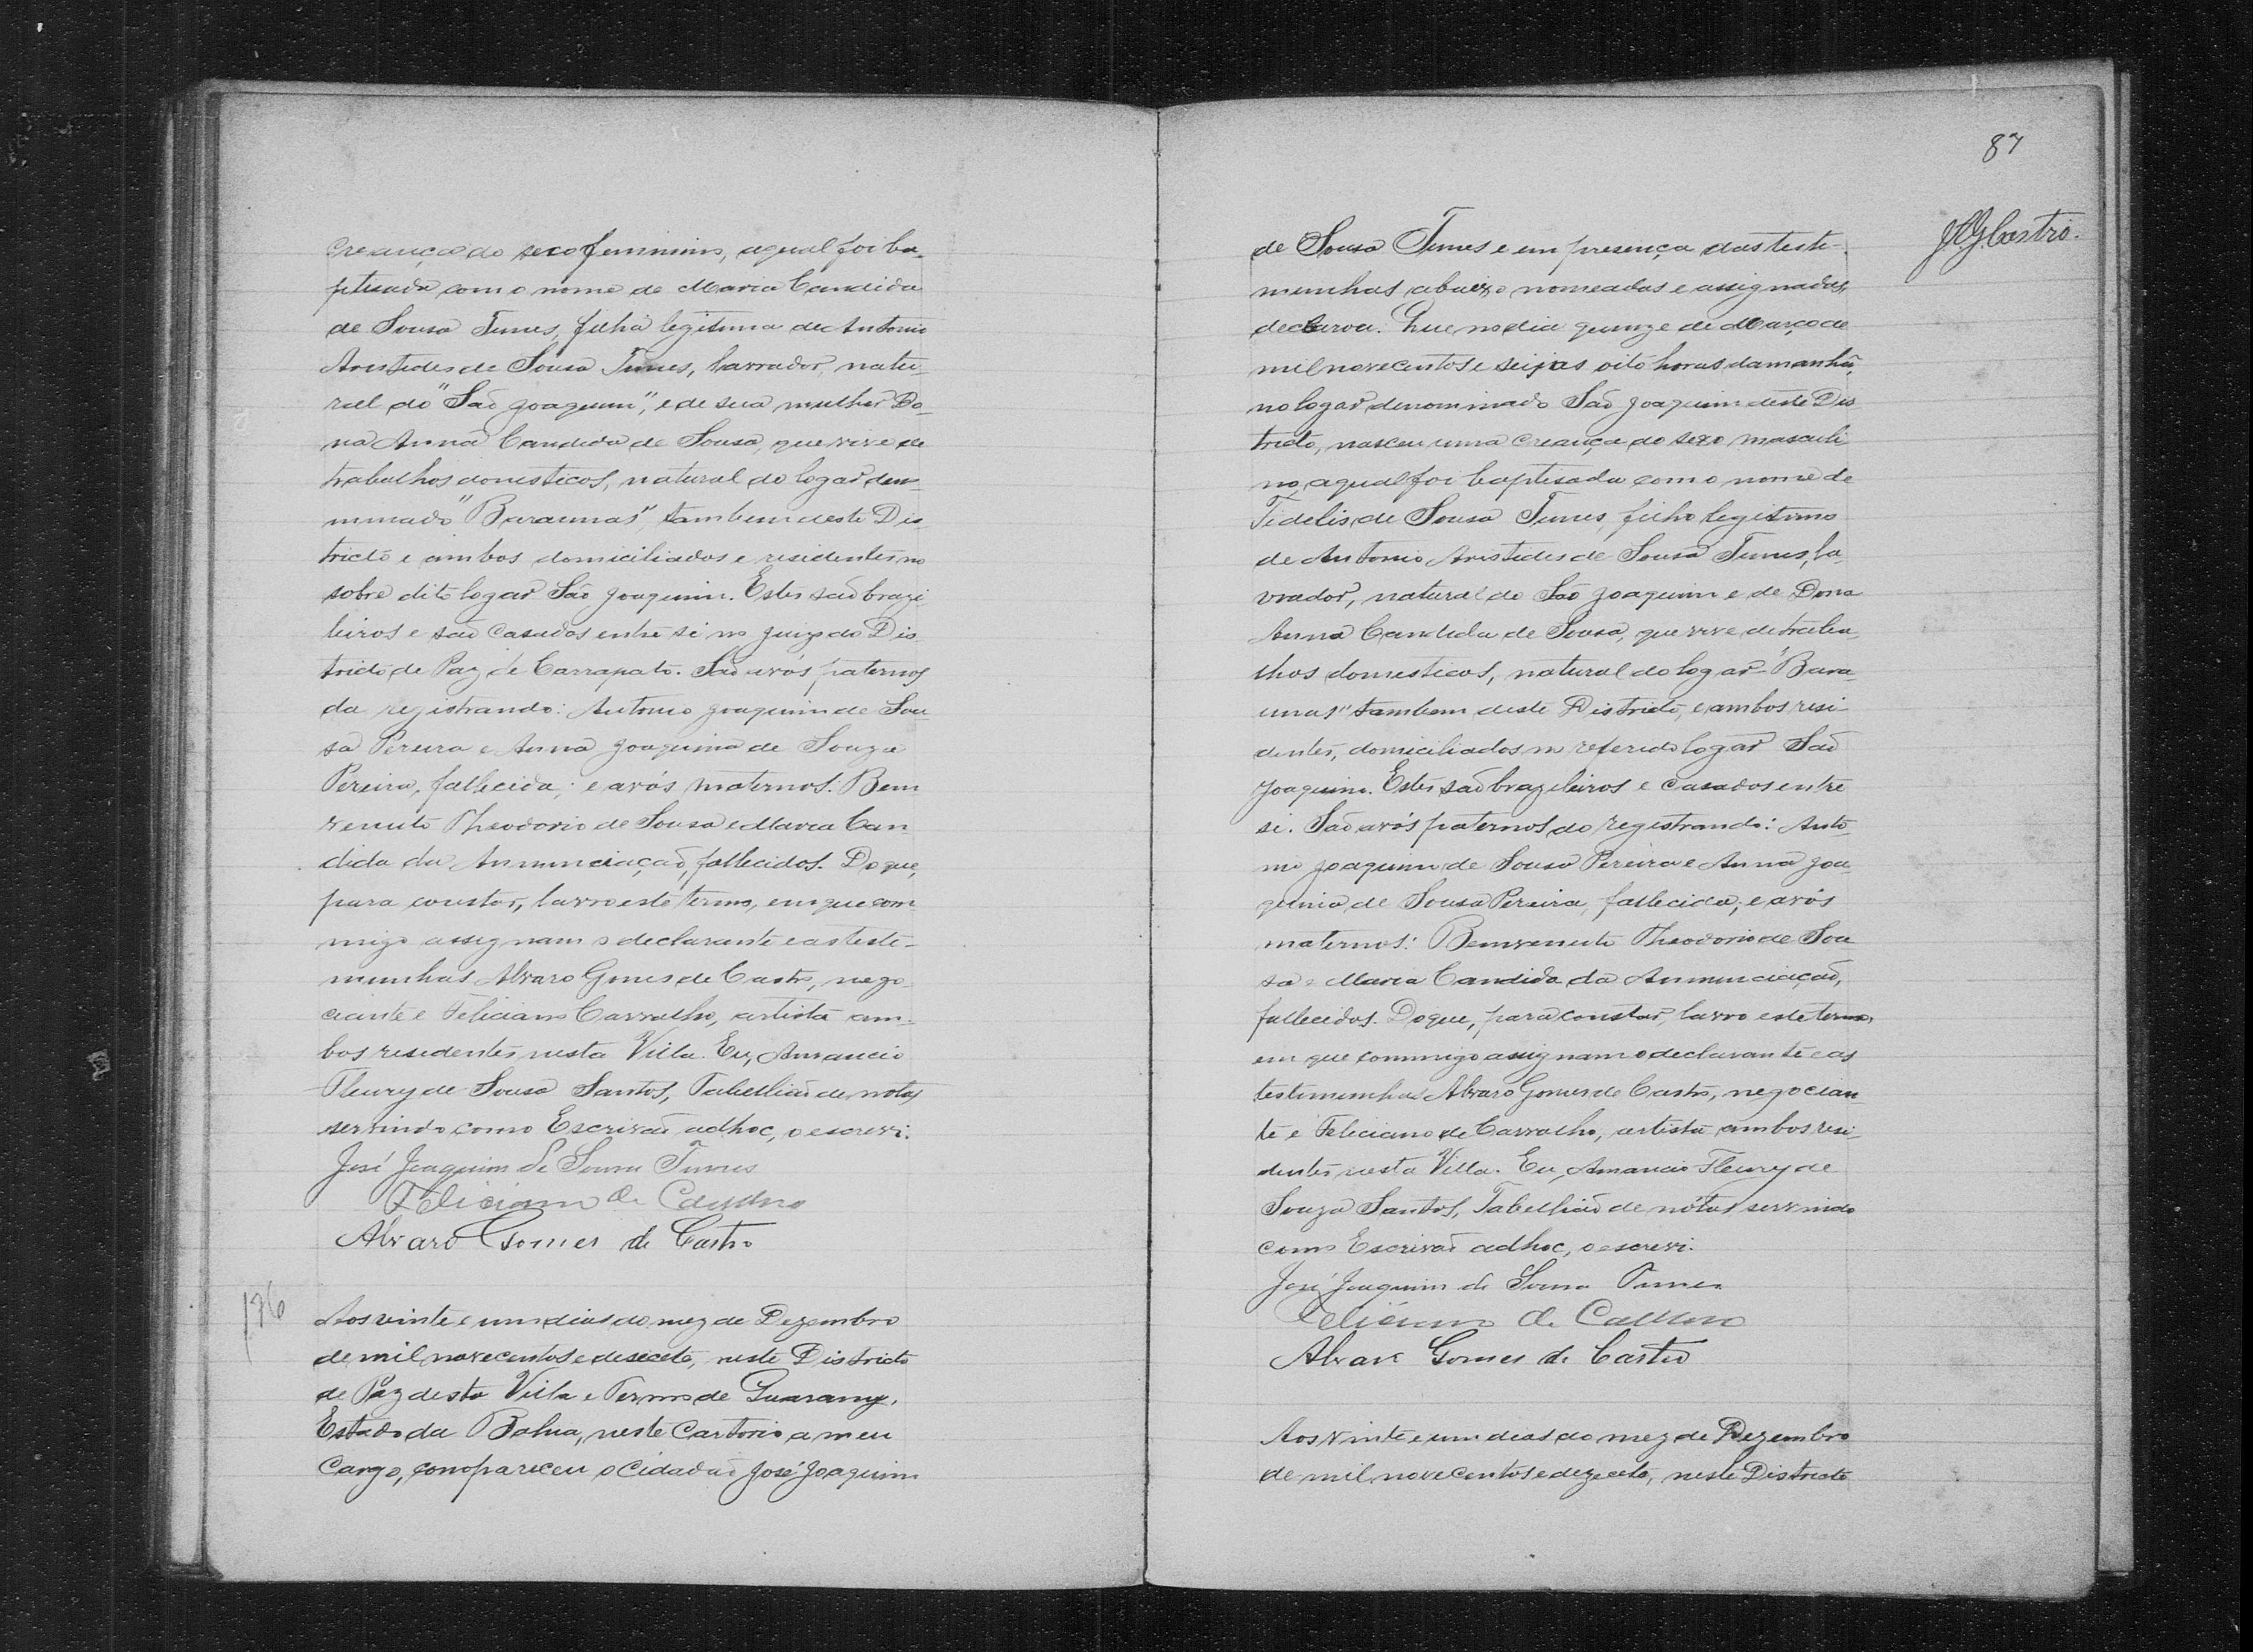 creança do sexo feminino, a qual foi ba-
ptisada com o nome de Maria Candida
de Sousa Tunes, filha legitima de Antonio
Aristides de Sousa Tunes, lavrador, natu-
ral do "São Joaquim", e de sua mulher Do-
na Anna Candida de Sousa, que vive de
trabalhos domesticos, natural do logar deno-
minado "Baraunas" tambem deste Dis
tricto e ambos domiciliados e residentes no
sobre dito logar São Joaquim. Estes são brazi
leiros e são casados entre si no Juizo do Dis
tricto de Paz de Carrapato. São avós paternos
da registrando: Antonio Joaquim de Sou
sa Pereira e Anna Joaquina de Souza
Pereira, fallecida; e avós maternos. Bem
venuto Theodorio de Sousa e Maria Can
dida da Annunciação, fallecidos. Do que,
para constar, lavro este termo, em que com
migo assignam o declarante e as teste-
munhas Alvaro Gomes de Castro, nego-
ciante e Feliciano Carvalho, artista am-
bos residentes nesta Villa. Eu, Amancio
Fleury de Sousa Santos, Tabellião de notas
servindo como Escrivão adhoc, o escrevi.
José Joaquim de Sousa Tunes
Feliciano de Carvalho
Alvaro Gomes de Castro
176
Aos vinte e um dias do mez de Dezembro
de mil novecentos e deseceto, neste Districto
de Paz desta Villa e Termo de Guarany,
Estado da Bahia, neste Cartorio a meu
Cargo, compareceu o Cidadão José Joaquim
87
J. G. Castro.
de Sousa Tunes e em presença das teste-
munhas abaixo nomeadas e assignadas,
declarou. Que no dia quinze de Março de
mil novecentos e seis, as oito horas da manhã,
no logar denominado São Joaquim deste Dis
tricto, nasceu uma creança do sexo masculi
no, a qual foi baptisada com o nome de
Fidelis de Sousa Tunes, filho legitimo
de Antonio Aristides de Sousa Tunes, la-
vrador, natural do São Joaquim e de Dona
Anna Candida de Sousa, que vive de traba-
lhos domesticos, natural do logar "Bara-
unas" tambem deste Districto, e ambos resi-
dentes, domiciliados no referido logar São
Joaquim. Estes são brazileiros e casados entre
si. São avós paternos do registrando: Anto-
nio Joaquim de Sousa Pereira e Anna Joa-
quina de Sousa Pereira, fallecida; e avós
maternos: Bemvenuto Theodorio de Sou
sa e Maria Candida da Annunciação,
fallecidos. Do que, para constar, lavro este termo,
em que commigo assignam o declarante e as
testemunhas Alvaro Gomes de Castro, negocian-
te e Feliciano de Carvalho, artista ambos resi-
dentes nesta Villa. Eu, Amancio Fleury de
Souza Santos, Tabellião de notas servindo
como Escrivão adhoc, o escrevi.
José Joaquim de Sousa Tunes
Feliciano de Carvalho
Alvaro Gomes de Castro
Aos vinte e um dias do mez de Dezembro
de mil novecentos e dezeceto, neste Districto